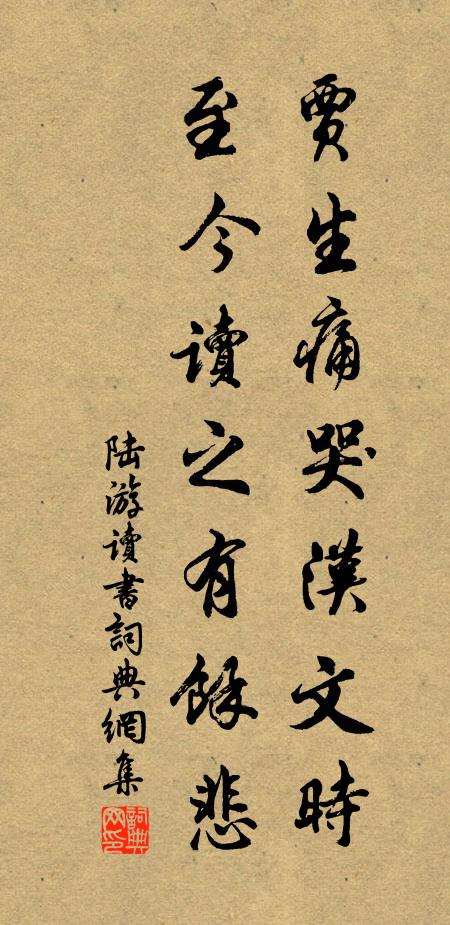 賈生痛哭漢文時
至今讀之有餘悲
陆游讀書詞典網集
詞典網印